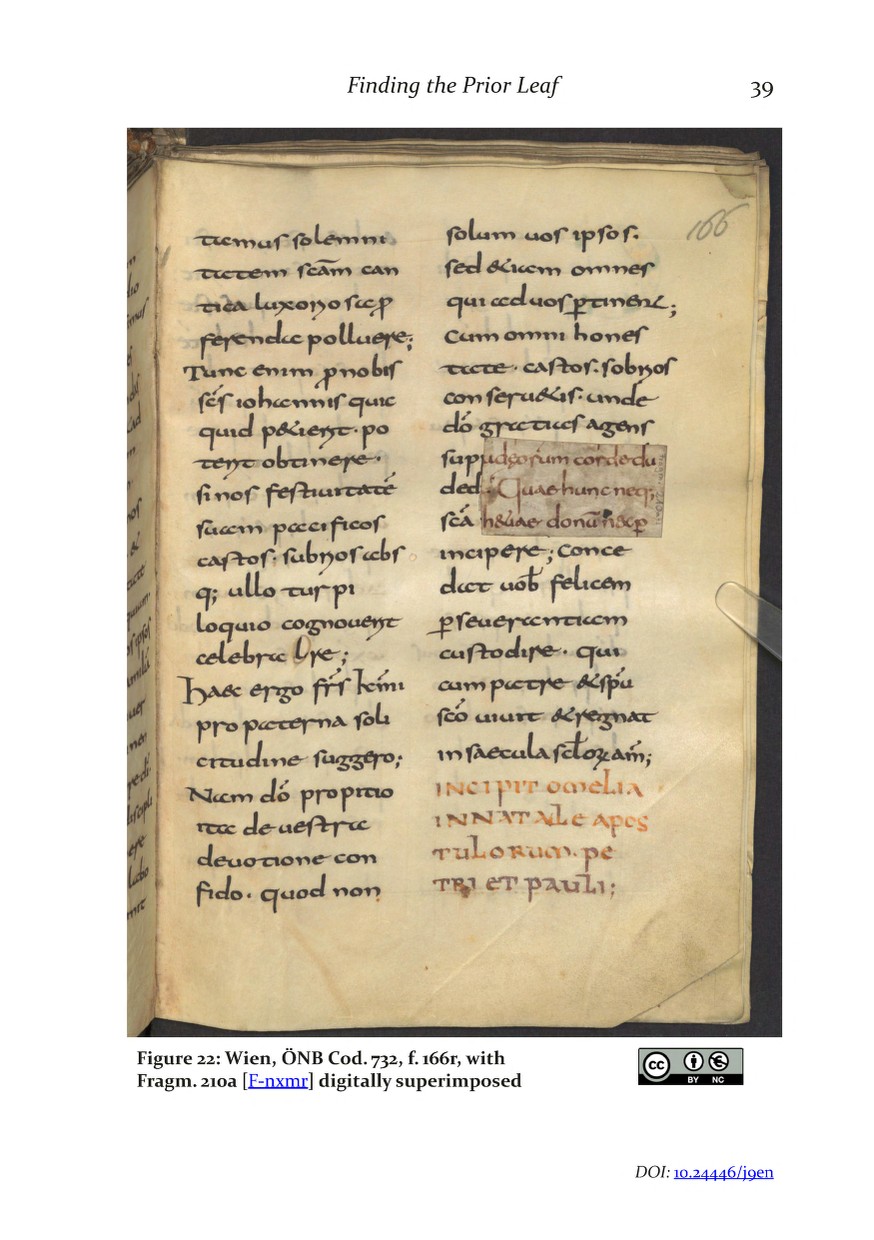 Finding the Prior Leaf
39
166
tiamus solemni
tatem scam̄ can
tica luxoriosa ꝓ
ferenda polluere;
Tunc enim ꝓ nobis
scs̄ iohannis quic
quid p&ierit· po
terit obtinere·
si nos festiuitatē
suam pacificos
castos· subrios abs
q; ullo turpi
loquio cognouerit
celebrare;
Haec ergo fr̄s km̄i
pro paterna soli
citudine suggero;
Nam dō propitio
ita de uestra
deuotione con
fido· quod non
solum uos ipsos·
sed &iam omnes
qui ad uos ꝑtinent;
Cum omni hones
tate· castos· sobrios
conseru&is· unde
dō gratias agens
sup udeorum corde du
ded Quae hunc neq;
scā h&uae donū
incipere; Conce
dat uob̄ felicem
ꝑseuerantiam
custodire· qui
cum patre &spū
scō uiuit &regnat
in saecula scl̄oꝝ am̄;
INCIPIT OMELIA
IN NATALE APOS
TULORUM· PE
TRI ET PAULI;
Figure 22: Wien, ÖNB Cod. 732, f. 166r, with
Fragm. 210a [F-nxmr] digitally superimposed
cc BY NC
DOI: 10.24446/j9en